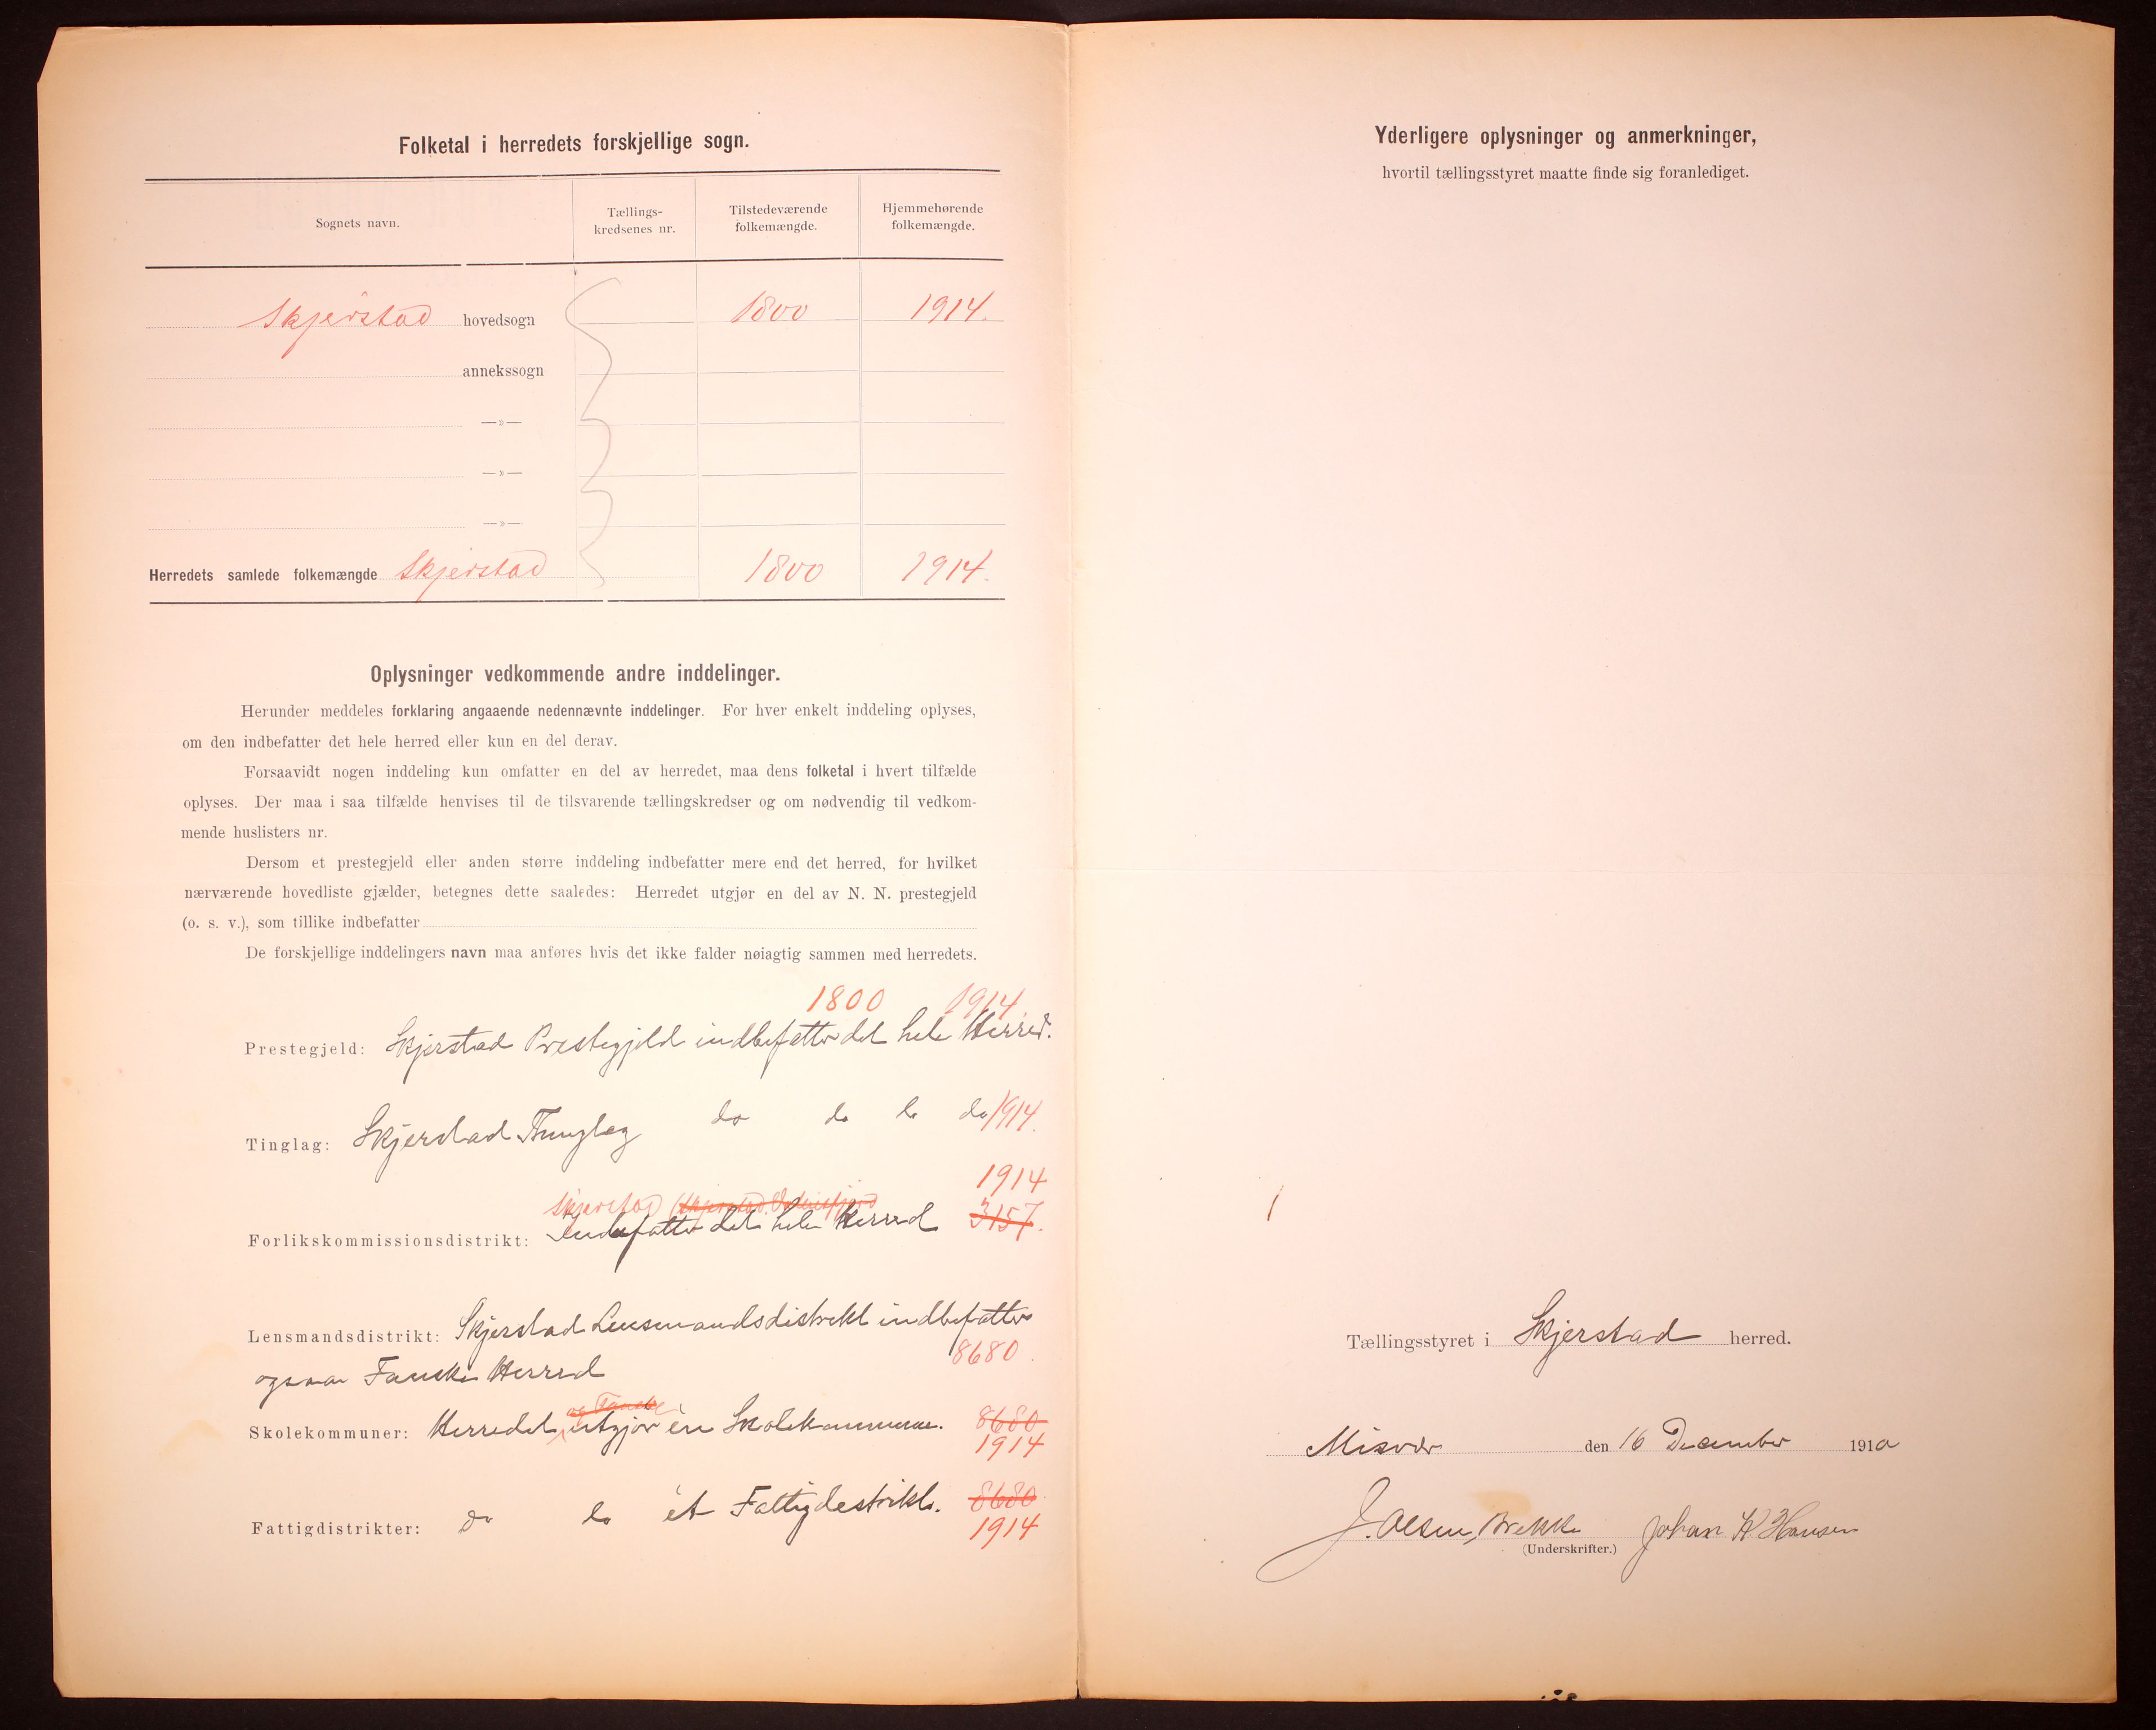 Folketal i herredets forskjellige sogn.
Sognets navn.
Tællings-
kredsenes nr.
Tilstedeværende
folkemængde.
Hjemmehørende
folkemængde.
Skjerstad hovedsogn 1800 1914.
annekssogn
—»—
—»—
—»—
Herredets samlede folkemængde Skjerstad 1800 1914.
Oplysninger vedkommende andre inddelinger.
Herunder meddeles forklaring angaaende nedennævnte inddelinger. For hver enkelt inddeling oplyses,
om den indbefatter det hele herred eller kun en del derav.
Forsaavidt nogen inddeling kun omfatter en del av herredet, maa dens folketal i hvert tilfælde
oplyses. Der maa i saa tilfælde henvises til de tilsvarende tællingskredser og om nødvendig til vedkom-
mende huslisters nr.
Dersom et prestegjeld eller anden større inddeling indbefatter mere end det herred, for hvilket
nærværende hovedliste gjælder, betegnes dette saaledes: Herredet utgjør en del av N. N. prestegjeld
(o. s. v.), som tillike indbefatter
De forskjellige inddelingers navn maa anføres hvis det ikke falder nøiagtig sammen med herredets.
1800 1914.
Prestegjeld: Skjerstad Prestegjeld indbefatter det hele Herred.
Tinglag: Skjerstad Thinglag do do do do 1914.
1914
Skjerstad (Skjerstad
Forlikskommissionsdistrikt: Indbefatter det hele Herred 3157.
Lensmandsdistrikt: Skjerstad Lensmandsdistrikt indbefatter
ogsaa Fauske Herred 8680.
og Fauske
Skolekommuner: Herredet utgjør èn Skolekommune. 8680
1914
Fattigdistrikter: Do do ét Fattigdistrikt. 8680
1914
Yderligere oplysninger og anmerkninger,
hvortil tællingsstyret maatte finde sig foranlediget.
Tællingsstyret i Skjerstad herred.
Misvær den 16 December 1910
J. Olsen, Brekke Johan K Hansen
(Underskrifter.)